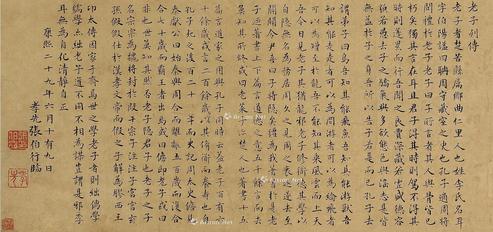 老子列傳
老子者楚苦縣厲鄉曲仁里人也姓李氏名耳
字伯陽諡曰聃周守藏室之史也孔子適周將
問禮於老子老子曰子所言者其人與骨皆已
朽矣獨其言在耳且君子得其時則駕不得其
時則蓬累而行吾聞之良賈深藏若虛盛德容
貌若愚去子之驕氣與多欲態色與淫志是皆
無益於子之身吾所以告子若是而已孔子去
謂弟子曰鳥吾知其能飛魚吾知其能游獸吾
知其能走走者可以為罔游者可以為綸飛者
可以為矰至於龍吾不能知其乘風雲而上天
吾今日見老子其猶龍邪老子修道德其學以
自隱無名為務居周久之見周之衰迺遂去至
關關令尹喜曰子將隱矣彊為我著書於是老
子迺著書上下篇言道德之意五千餘言而去
莫知其所終或曰老萊子亦楚人也著書十五
篇言道家之用與孔子同時云蓋老子百有六
十餘歲或言二百餘歲以其脩道而養壽也自
孔子死之後百二十九年而史記周太史儋見
秦獻公曰始秦與周合而離離五百歲而復合
合七十歲而霸王者出焉或曰儋即老子或曰
非也世莫知其然否老子隱君子也老子之子
名宗宗為魏將封於段干宗子注注子宮宮玄
孫假假仕於漢孝文帝而假之子解為膠西王
卬太傅因家于齊焉世之學老子者則絀儒學
儒學亦絀老子道不同不相為謀豈謂是邪李
耳無為自化清靜自正
康熙二十九年六月十有九日
孝先張伯行臨